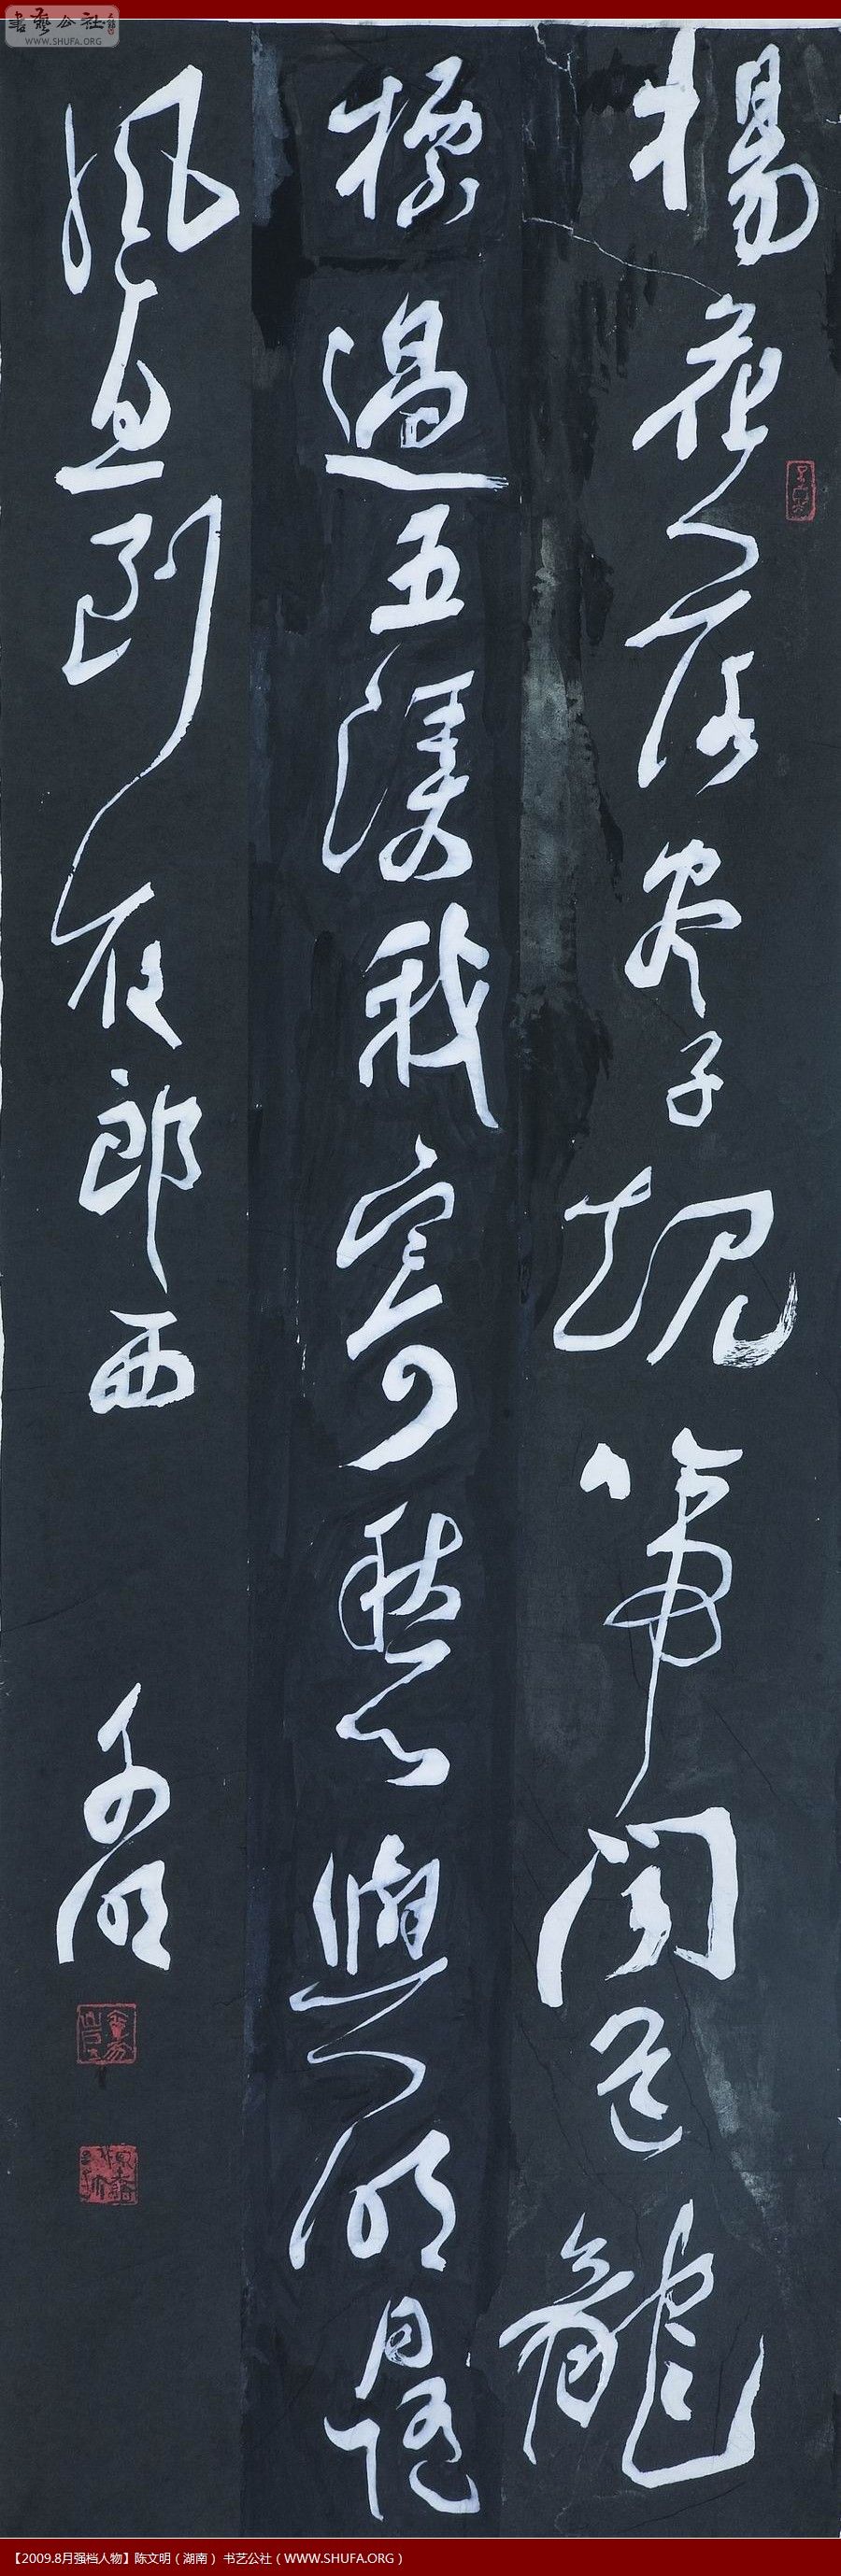 書藝公社
WWW.SHUFA.ORG
楊花落尽子規啼聞道龍
標過五溪我寄愁心與明月随
風直到夜郎西
文明
【2009.8月强档人物】陈文明（湖南） 书艺公社（WWW.SHUFA.ORG）